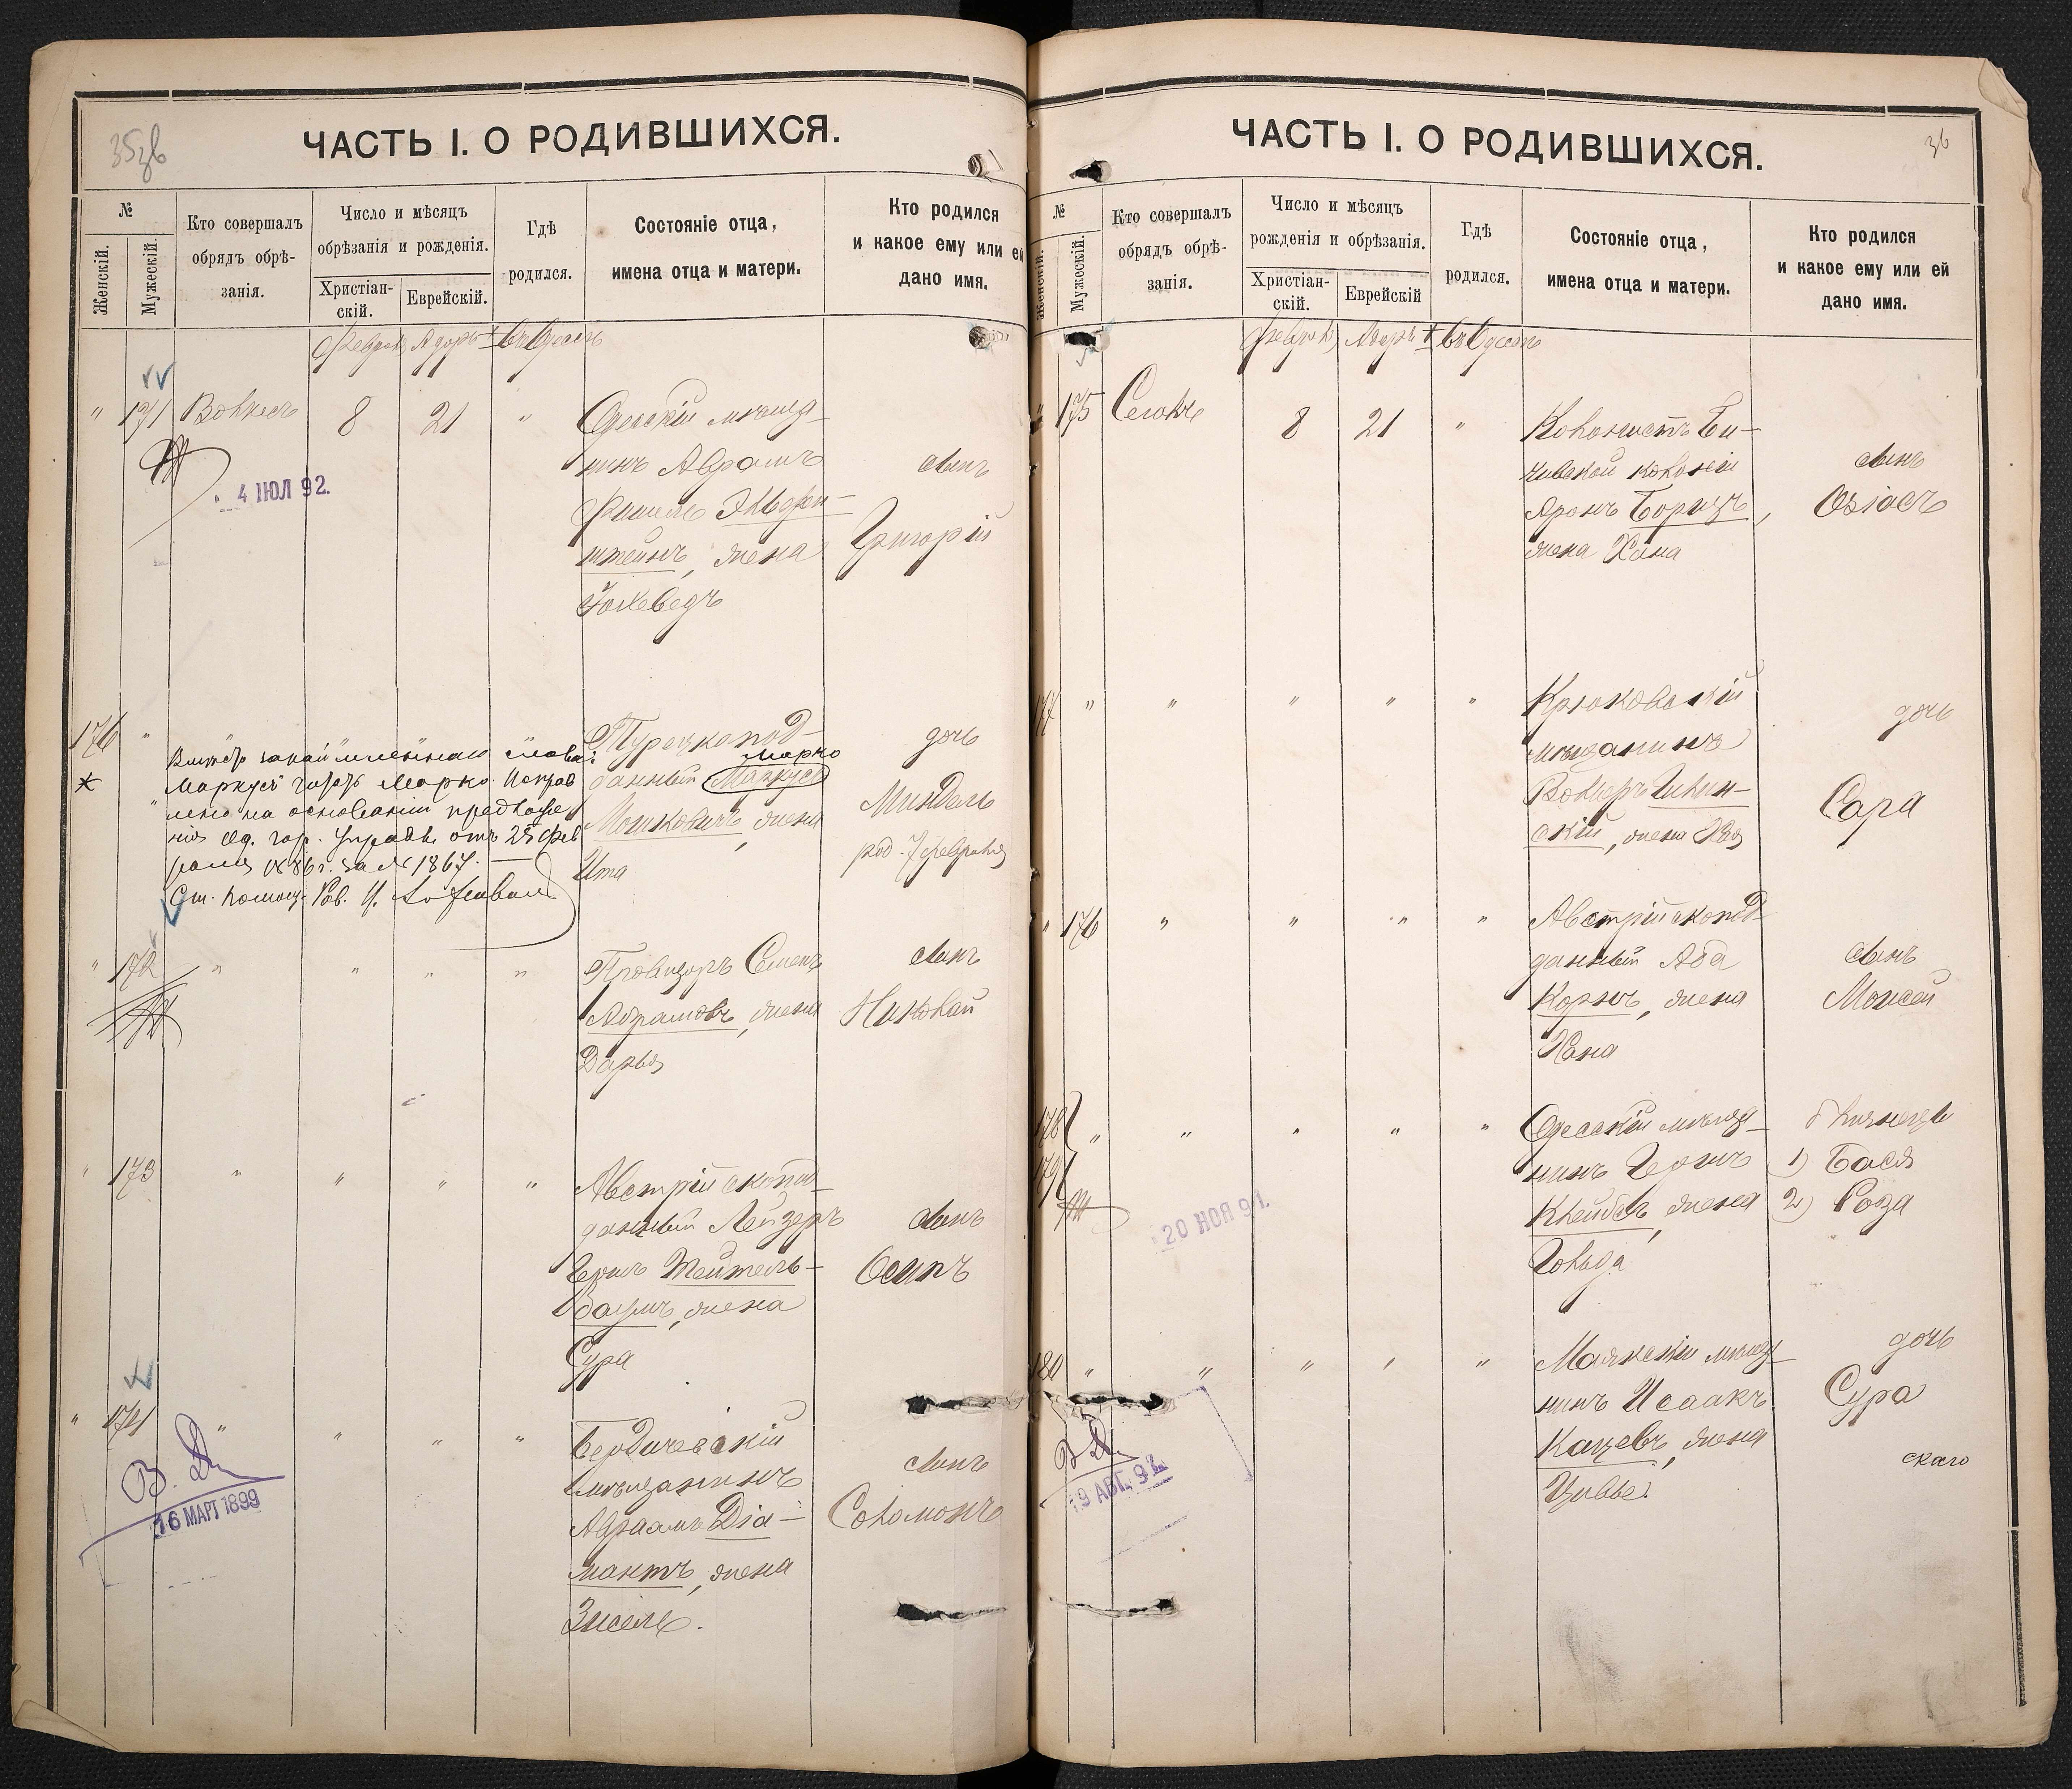 35зв
ЧАСТЬ I. О РОДИВШИХСЯ.
№
Женскій.
Мужескій.
Кто совершалъ
обрядъ обрѣ-
занія.
Число и мѣсяцъ
обрѣзанія и рожденія.
Христіан-
скій.
Еврейскій.
Гдѣ
родился.
Состояніе отца,
имена отца и матери.
Кто родился
и какое ему или ей
дано имя.
Февраль Адаръ въ Одессѣ
" 171 8 21 "
4 ІЮЛ 92.
Одесскій мѣща-
нинъ Абрамъ
Фишель
штейнъ, жена
сынъ
Григорій
176 "
Вмѣсто
Маркусъ читать Марко. Исправ
лено на основаніи предложе
нія Од. гор. Управы отъ 25 фев
раля 1886 г. за № 1867.
Ст. помощ. Рав.
Турецкопод-
Марко
данный Маркусъ
Мошковичъ, жена
Ита
дочь
Миндель
род. 7 февраля
" 172 " " " "
Провизоръ Семенъ
Абрамовъ, жена
Дарья
сынъ
Николай
" 173 " " " "
Австрійскопод-
данный Лейзеръ
Гершъ Тейтель-
баумъ, жена
Сура
сынъ
Осипъ
" 174 " " " "
16 МАРТ 1899
Бердичевскій
мѣщанинъ
Абрамъ Діа-
мантъ, жена
Зисель.
сынъ
Соломонъ
36
ЧАСТЬ I. О РОДИВШИХСЯ.
№
Женскій.
Мужескій.
Кто совершалъ
обрядъ обрѣ-
занія.
Число и мѣсяцъ
рожденія и обрѣзанія.
Христіан-
скій.
Еврейскій
Гдѣ
родился.
Состояніе отца,
имена отца и матери.
Кто родился
и какое ему или ей
дано имя.
Февраль Адаръ въ Одессѣ
" 175 8 21 "
Колонистъ
колоніи
Аронъ Борицъ,
жена Хана
сынъ
Озіасъ
177 " " " " "
Крюковскій
мѣщанинъ
скій, жена Хая
дочь
Сара
" 176 " " " "
Австрійскопод-
данный Аба
Корнъ, жена
Хана
сынъ
Моисей
178 " " " " "
179
20 НОЯ 91.
Одесскій мѣща-
нинъ Гершъ
жена
Гольда
близнецы
1) Бася
2) Роза
180 " " " " "
19 АВГ. 92
Маякскій мѣща-
нинъ Исаакъ
Кацевъ, жена
дочь
Сура
скаго